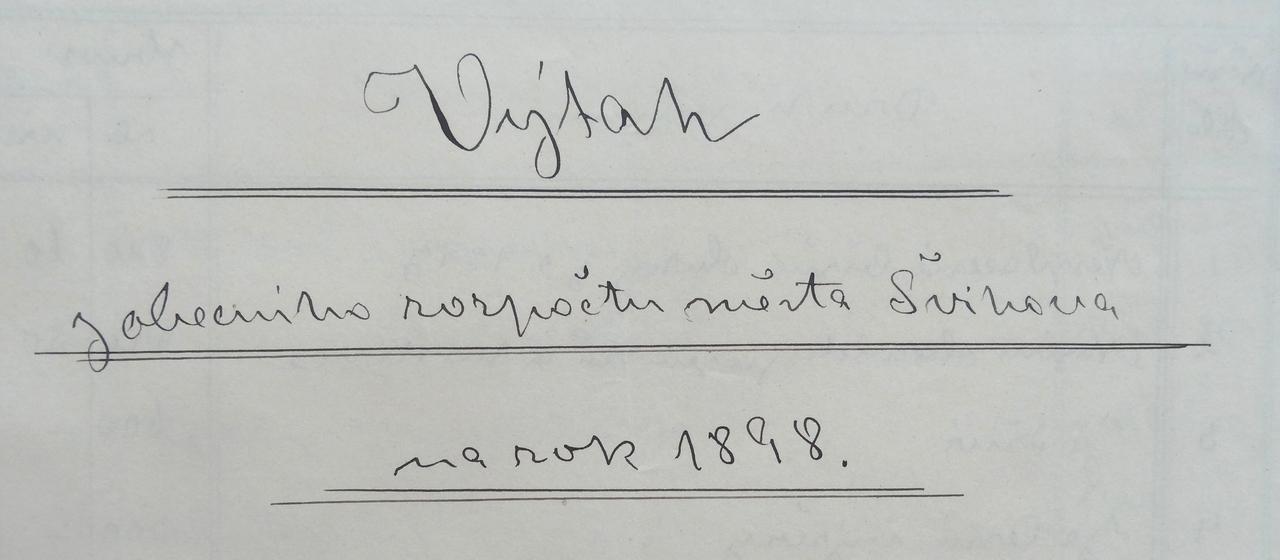 Výtah
z obecního rozpočtu města Švihova
na rok 1898.